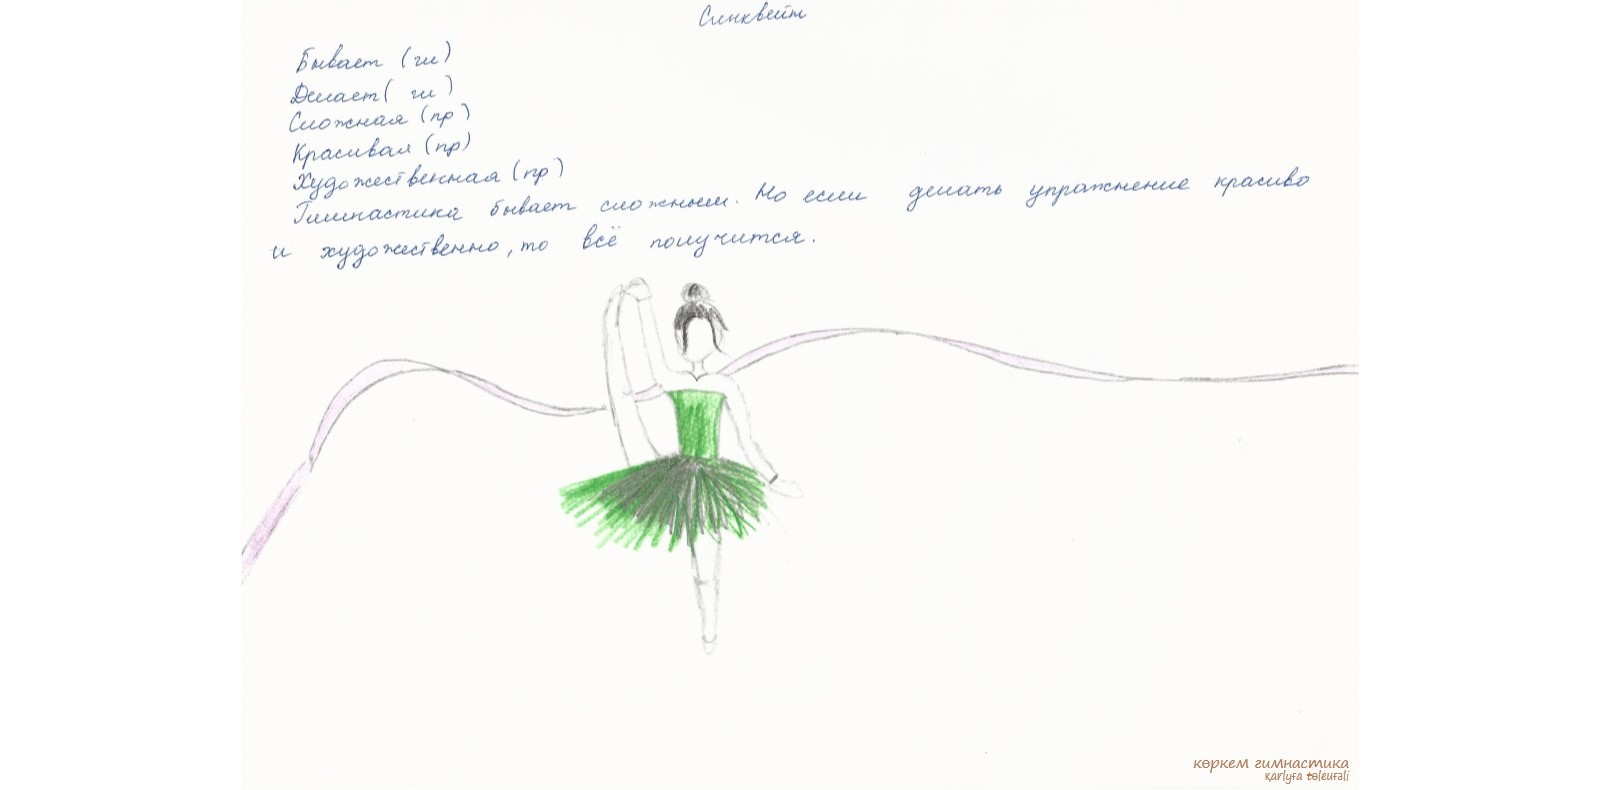 Синквейт
Бывает (гл)
Делает ( гл )
Сложная (пр)
Красивая (пр)
Художественная (пр)
Гимнастика бывает сложным. Но если делать упражнение красиво
и художественно, то всё получится.
көркем гимнастика
қarlyға төleuғali